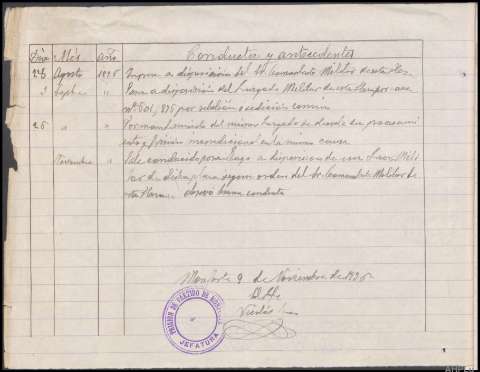 Día Mes año Conducta y antecedentes
28 Agosto 1936 Ingresa a disposición del Sr. Comandante Militar de esta Plaza
3 Septbre " Pasa a disposición del Juzgado Militar de esta Plaza por causa
nº 801, 836 por rebelión o sedición común
26 " " Por mandamiento del mismo Juzgado se decreta su procesami
ento y prisión incondicional en la misma causa
Noviembre " Sale conducido para Lugo a disposición de un Juez Mili
tar de dicha plaza según orden del Sr. Comandante Militar de
esta Plaza. observó buena conducta
Monforte 9 de Noviembre de 1936
El Jefe
Nicolás
PRISION DE PARTIDO DE MONFORTE
JEFATURA